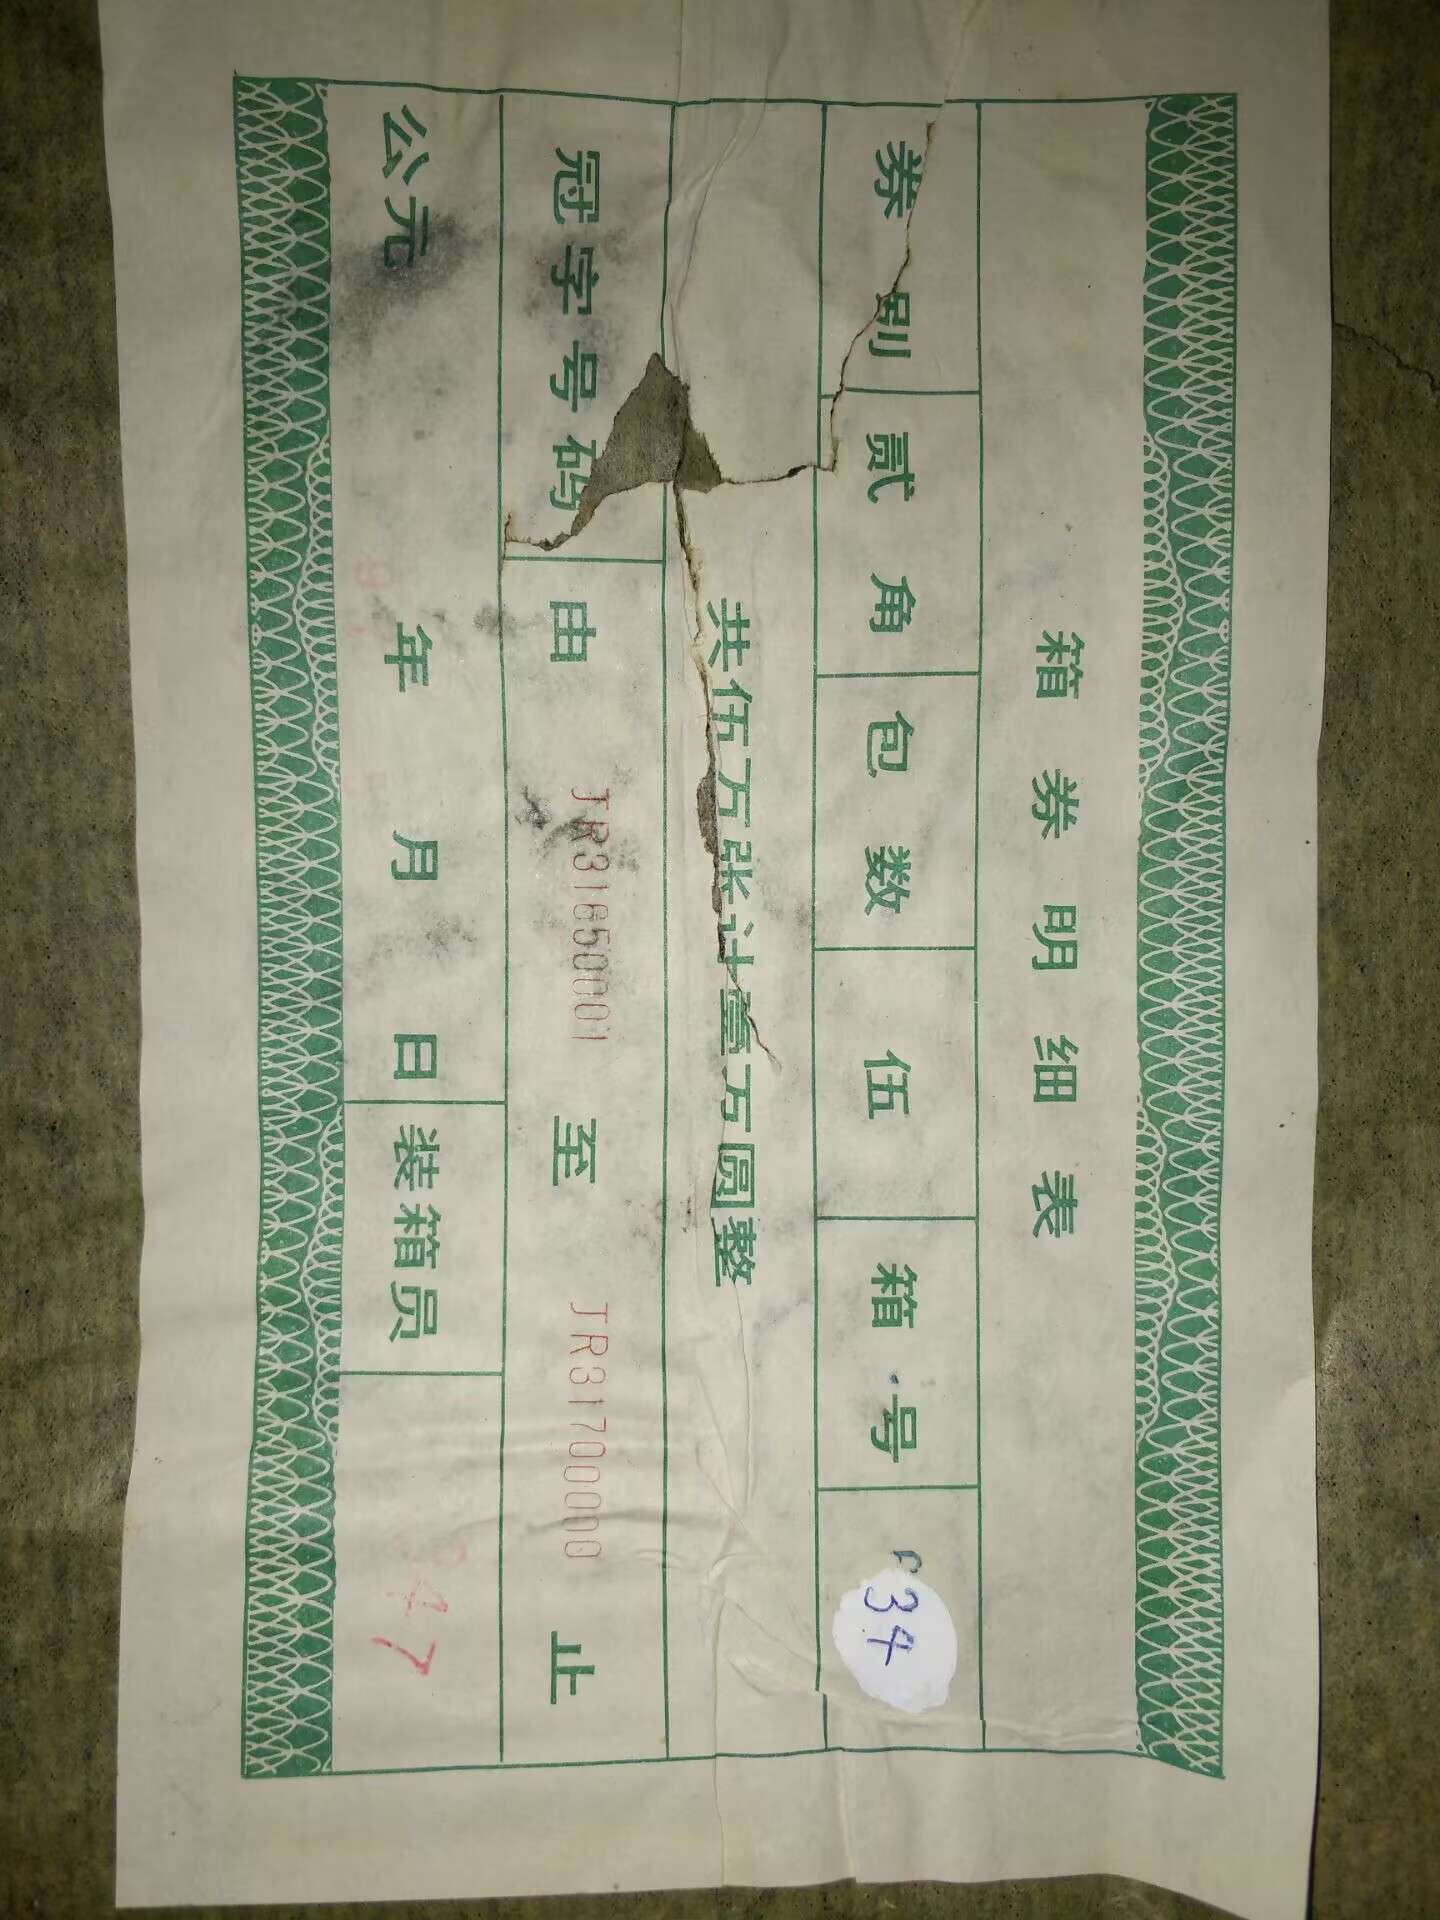 箱券明细表
券别 贰角 包数 伍 箱号 34
共伍万张计壹万圆整
冠字号码 由 JR31650001 至 JR3170000 止
公元 年 月 日 装箱员 47